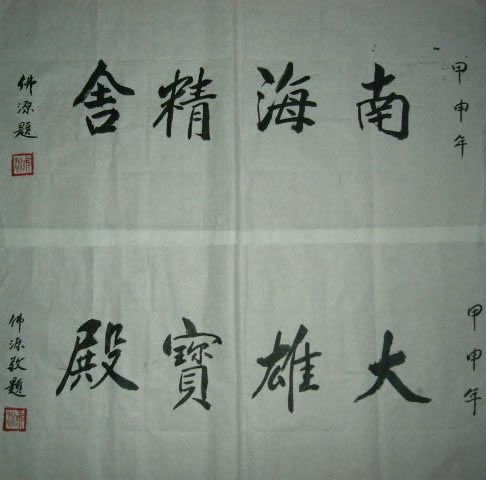 甲申年
南海精舍
佛源題
甲申年
大雄寳殿
佛源敬題